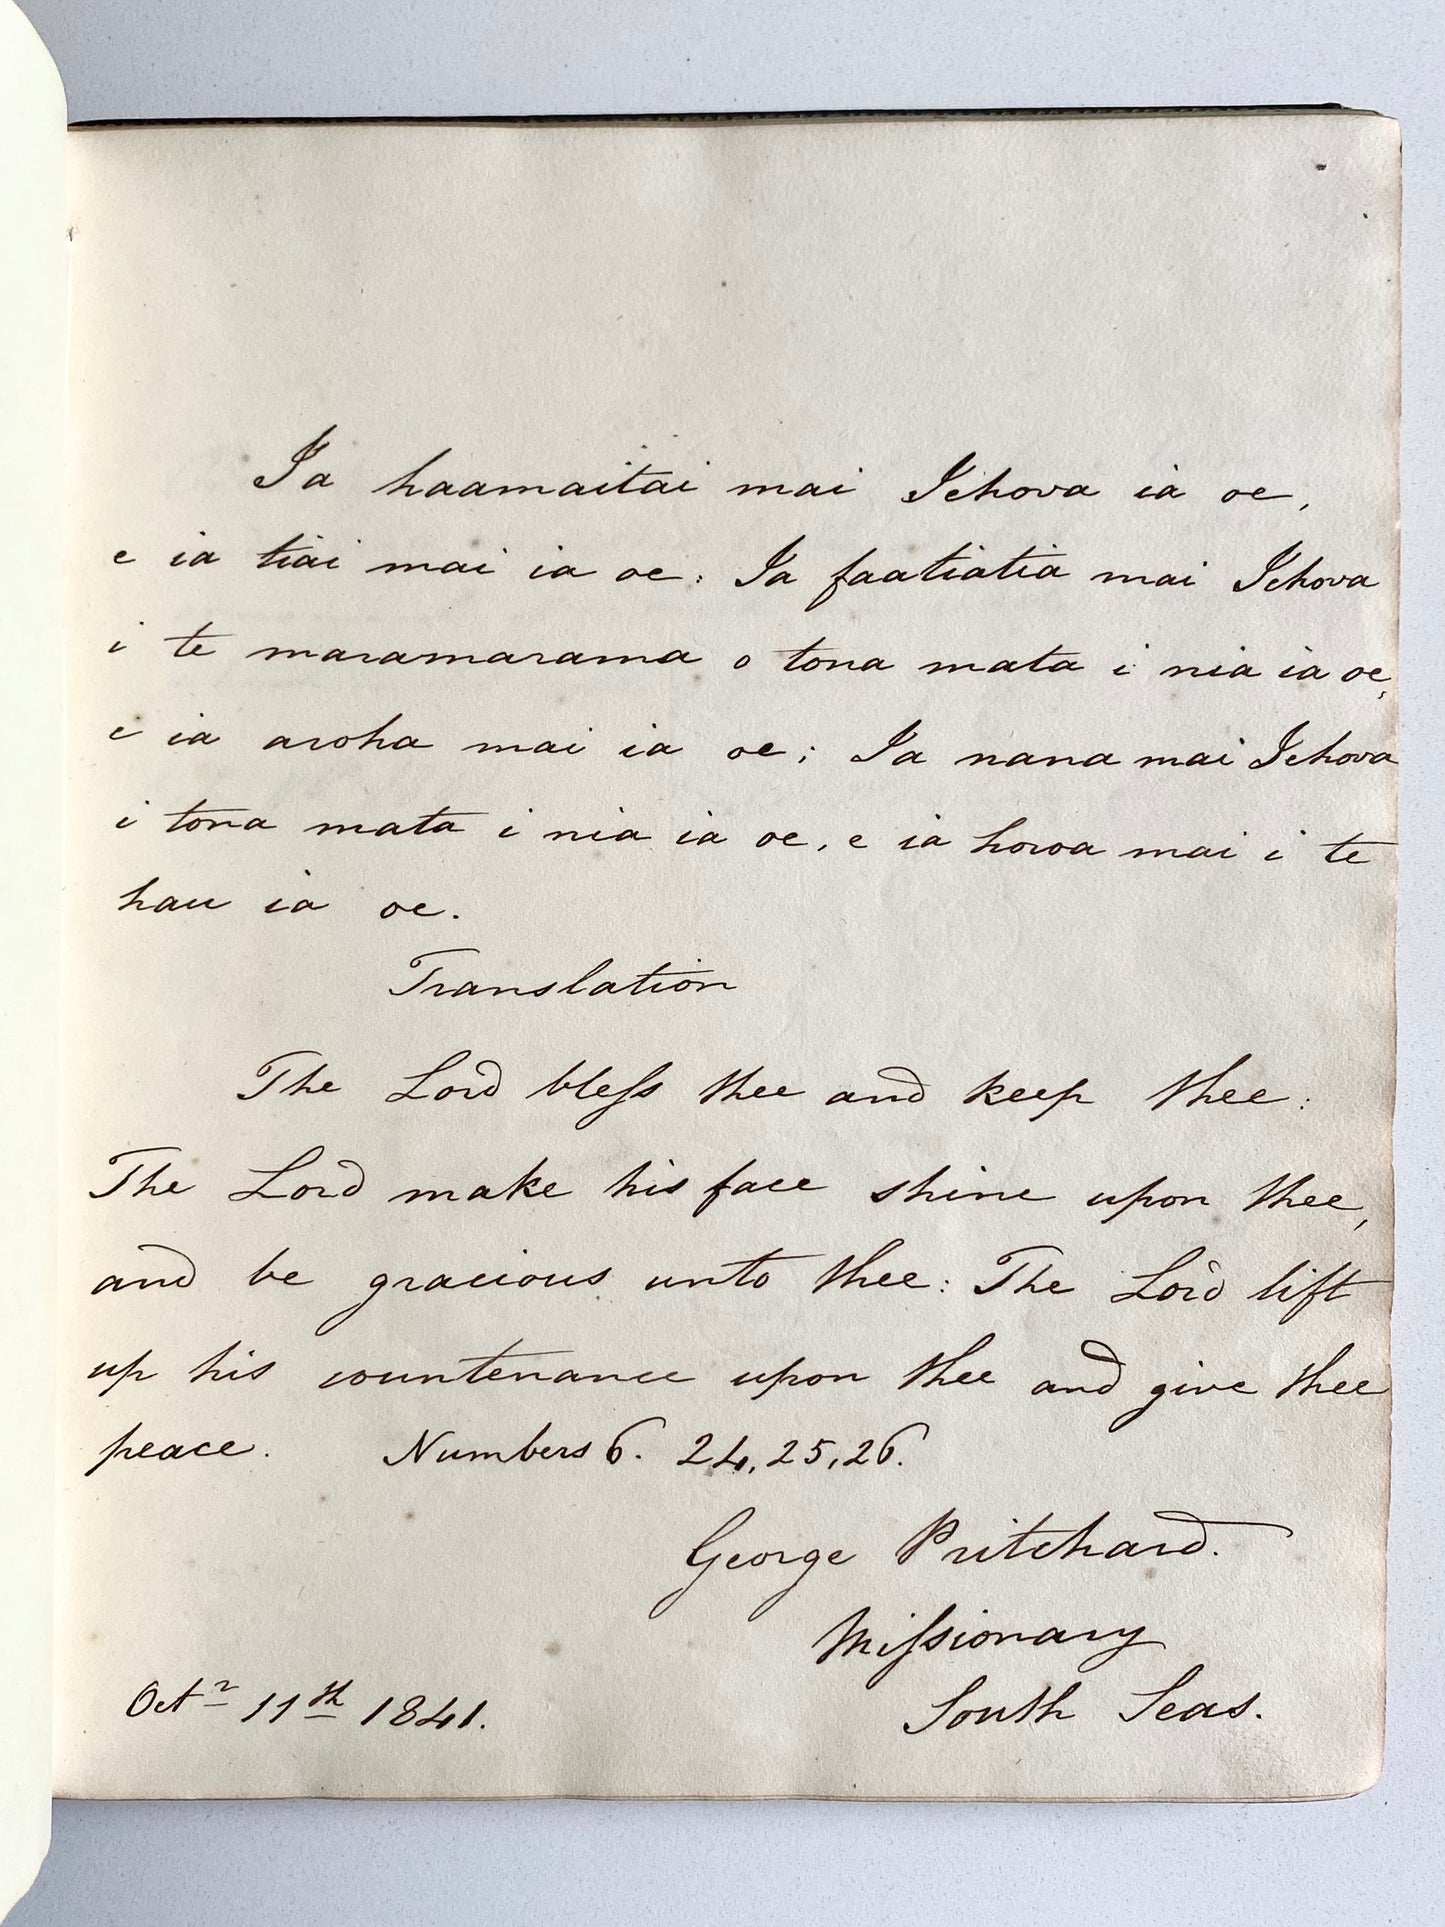 Ia haamaitai mai Iehova ia oe,
e ia tiai mai ia oe: Ia faatiatia mai Iehova
i te maramarama o tona mata i nia ia oe,
e ia aroha mai ia oe; Ia nana mai Iehova
i tona mata i nia ia oe, e ia horoa mai i te
hau ia oe.
Translation
The Lord bless thee and keep thee:
The Lord make his face shine upon thee,
and be gracious unto thee: The Lord lift
up his countenance upon thee and give thee
peace. Numbers 6. 24, 25, 26.
George Pritchard.
Missionary
South Seas.
Octr 11th 1841.